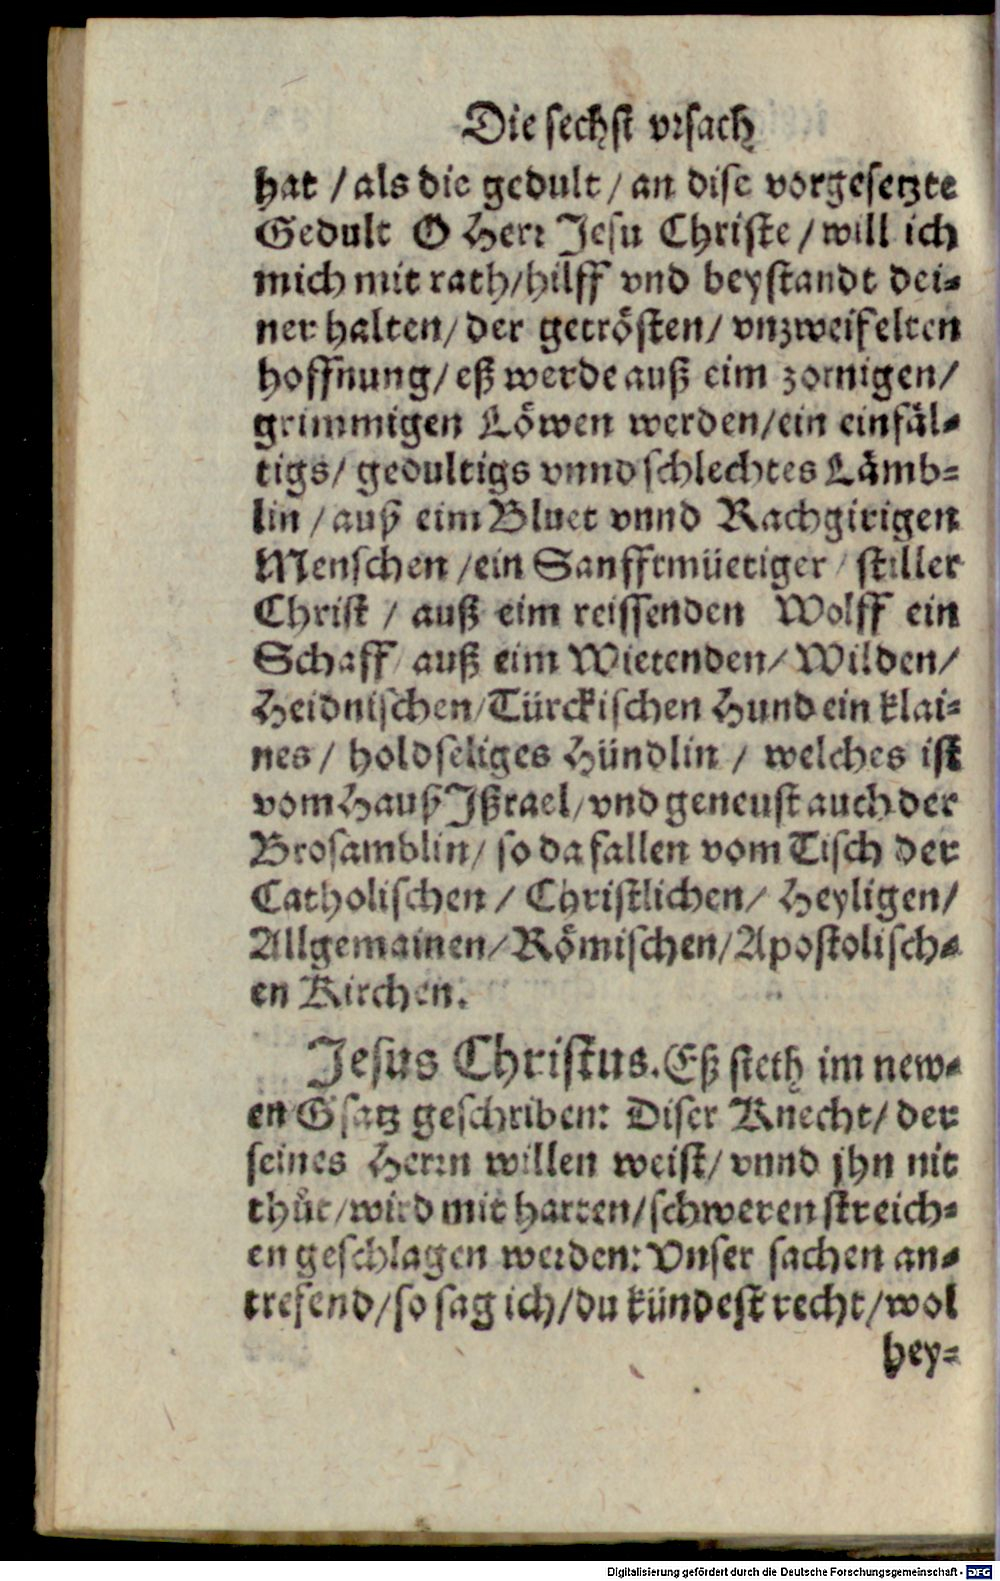 Die sechst vrsach
hat / als die gedult / an dise vorgesetzte
Gedult O Herr Jesu Christe / will ich
mich mit rath/hilff vnd beystandt dei-
ner halten/ der getrösten/ vnzweifelten
hoffnung/ eß werde auß eim zornigen/
grimmigen Löwen werden/ein einfäl-
tigs/ gedultigs vnnd schlechtes Lämb-
lin / auß eim Bluet vnnd Rachgirigen
Menschen /ein Sanfftmüetiger / stiller
Christ / auß eim reissenden Wolff ein
Schaff / auß eim Wietenden/ Wilden/
Heidnischen/Türckischen Hund ein klai-
nes / holdseliges Hündlin / welches ist
vom Hauß Jßrael/vnd geneust auch der
Brosamblin/ so da fallen vom Tisch der
Catholischen / Christlichen/ Heyligen/
Allgemainen/ Römischen/Apostolisch-
en Kirchen.
Jesus Christus. Eß steth im new-
en Gsatz geschriben: Diser Knecht/ der
seines Herrn willen weist/ vnnd jhn nit
thůt/wird mit harten/schweren streich-
en geschlagen werden: Vnser sachen an-
trefend/so sag ich/du kündest recht/wol
hey-
Digitalisierung gefördert durch die Deutsche Forschungsgemeinschaft - DFG